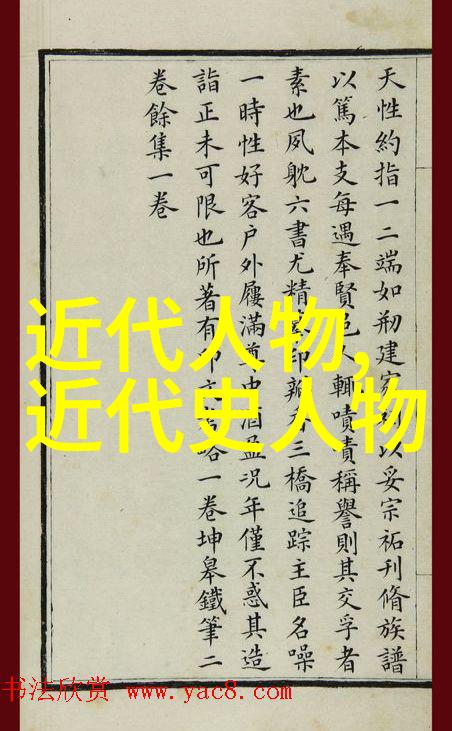 天性約指一二端如剏建家以妥宗祏刊脩族譜
以篤本支每遇奉賢邑人輒嘖嘖稱譽則其交孚者
素也夙躭六書尤精篆印瓣三橋追踪主臣名噪
一時性好客户外屨滿尊中酒盈況年僅不惑其造
詣正未可限也所著有印文略一卷坤皋鐵筆二
卷餘集一卷
近代人物,
近代史人物
书法欣赏 www.yac8.com